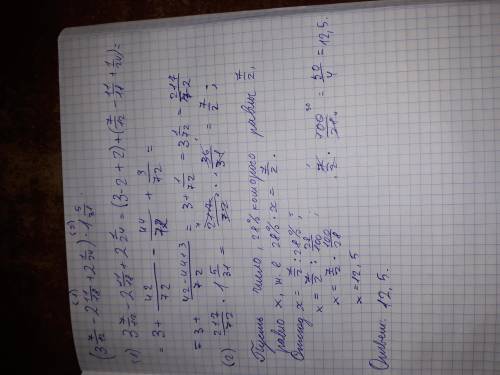 (1) (2)
(3 7/12 - 2 11/18 + 2 1/24) · 1 5/31
(1) 3 7/12 - 2 11/18 + 2 1/24 = (3-2+2)+(7/12 - 11/18 + 1/24)=
= 3 + 42/72 - 44/72 + 3/72 =
= 3 + (42-44+3)/72 = 3 + 1/72 = 3 1/72 = 217/72
(2) 217/72 · 1 5/31 = 217/72 · 36/31 = 7/2;
Пусть число, 28% которого равны 7/2,
равно x, т. е. 28% · x = 7/2.
Отсюда x = 7/2 : 28%;
x = 7/2 : 28/100;
x = 7/2 · 100/28 7/2 · 100/28 = 50/4 = 12,5.
x = 12,5
Ответ: 12,5.